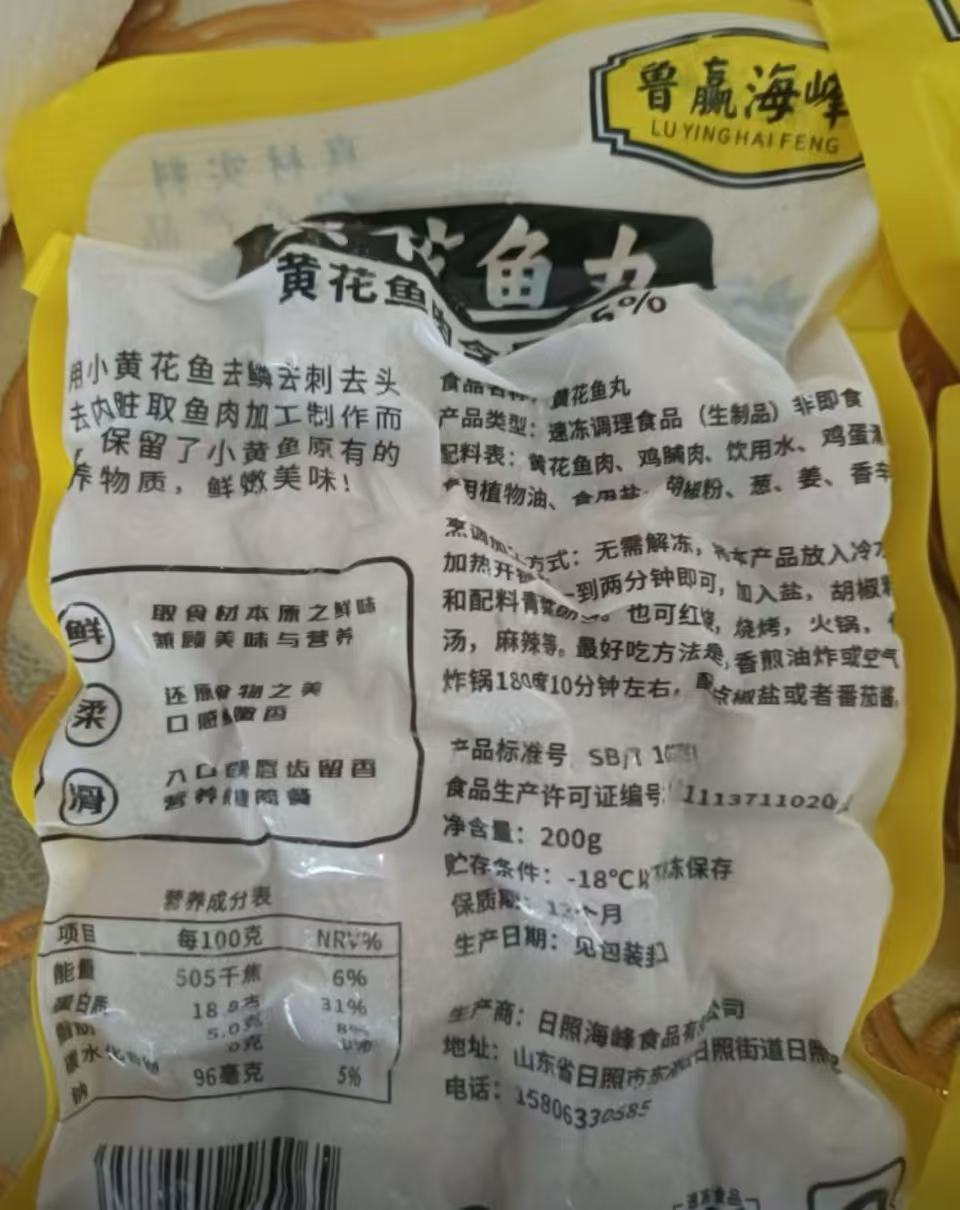 鲁赢海峰
LU YING HAI FENG
真材实料
花鱼丸
黄花鱼肉含量 5%
用小黄花鱼去鳞去刺去头
去内脏取鱼肉加工制作而
保留了小黄鱼原有的
养物质，鲜嫩美味！
食品名称：黄花鱼丸
产品类型：速冻调理食品（生制品）非即食
配料表：黄花鱼肉、鸡脯肉、饮用水、鸡蛋清
食用植物油、食用盐、胡椒粉、葱、姜、香辛
烹调加工方式：无需解冻，将本产品放入冷水
加热开锅一到两分钟即可，加入盐，胡椒粉
和配料青菜即可。也可红烧，烧烤，火锅，
汤，麻辣等。最好吃方法是，香煎油炸或空气
炸锅180度10分钟左右，蘸点椒盐或者番茄酱
鲜
取食材本原之鲜味
兼顾美味与营养
柔
还原食物之美
口感嫩香
滑
入口 唇齿留香
营养健康
产品标准号 SB/T
食品生产许可证编号 1113711020
净含量：200g
贮存条件：-18℃以下冷冻保存
保质期：12个月
生产日期：见包装封口
营养成分表
项目 每100克 NRV%
能量 505千焦 6%
蛋白质 18.8克 31%
脂肪 5.0克 8%
碳水化合物 0克 0%
钠 96毫克 5%
生产商：日照海峰食品有限公司
地址：山东省日照市东港区日照街道日照
电话：15806330585
速冻食品